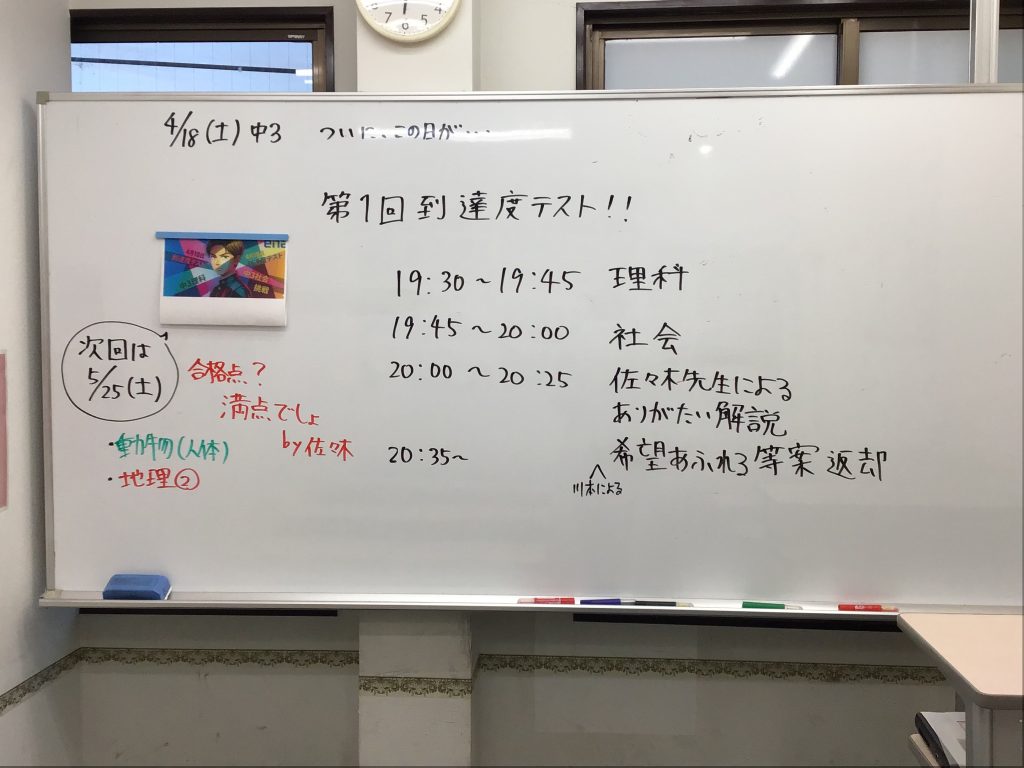 4/18(土)中3 ついに、この日が...
第1回到達度テスト!!
19:30～19:45 理科
19:45～20:00 社会
20:00～20:25 佐々木先生による
ありがたい解説
20:35～ 希望あふれる答案返却
川本による
中3理科
中3社会
挑戦
次回は
5/25(土)
合格点?
満点でしょ
by佐々木
・動物(人体)
・地理②